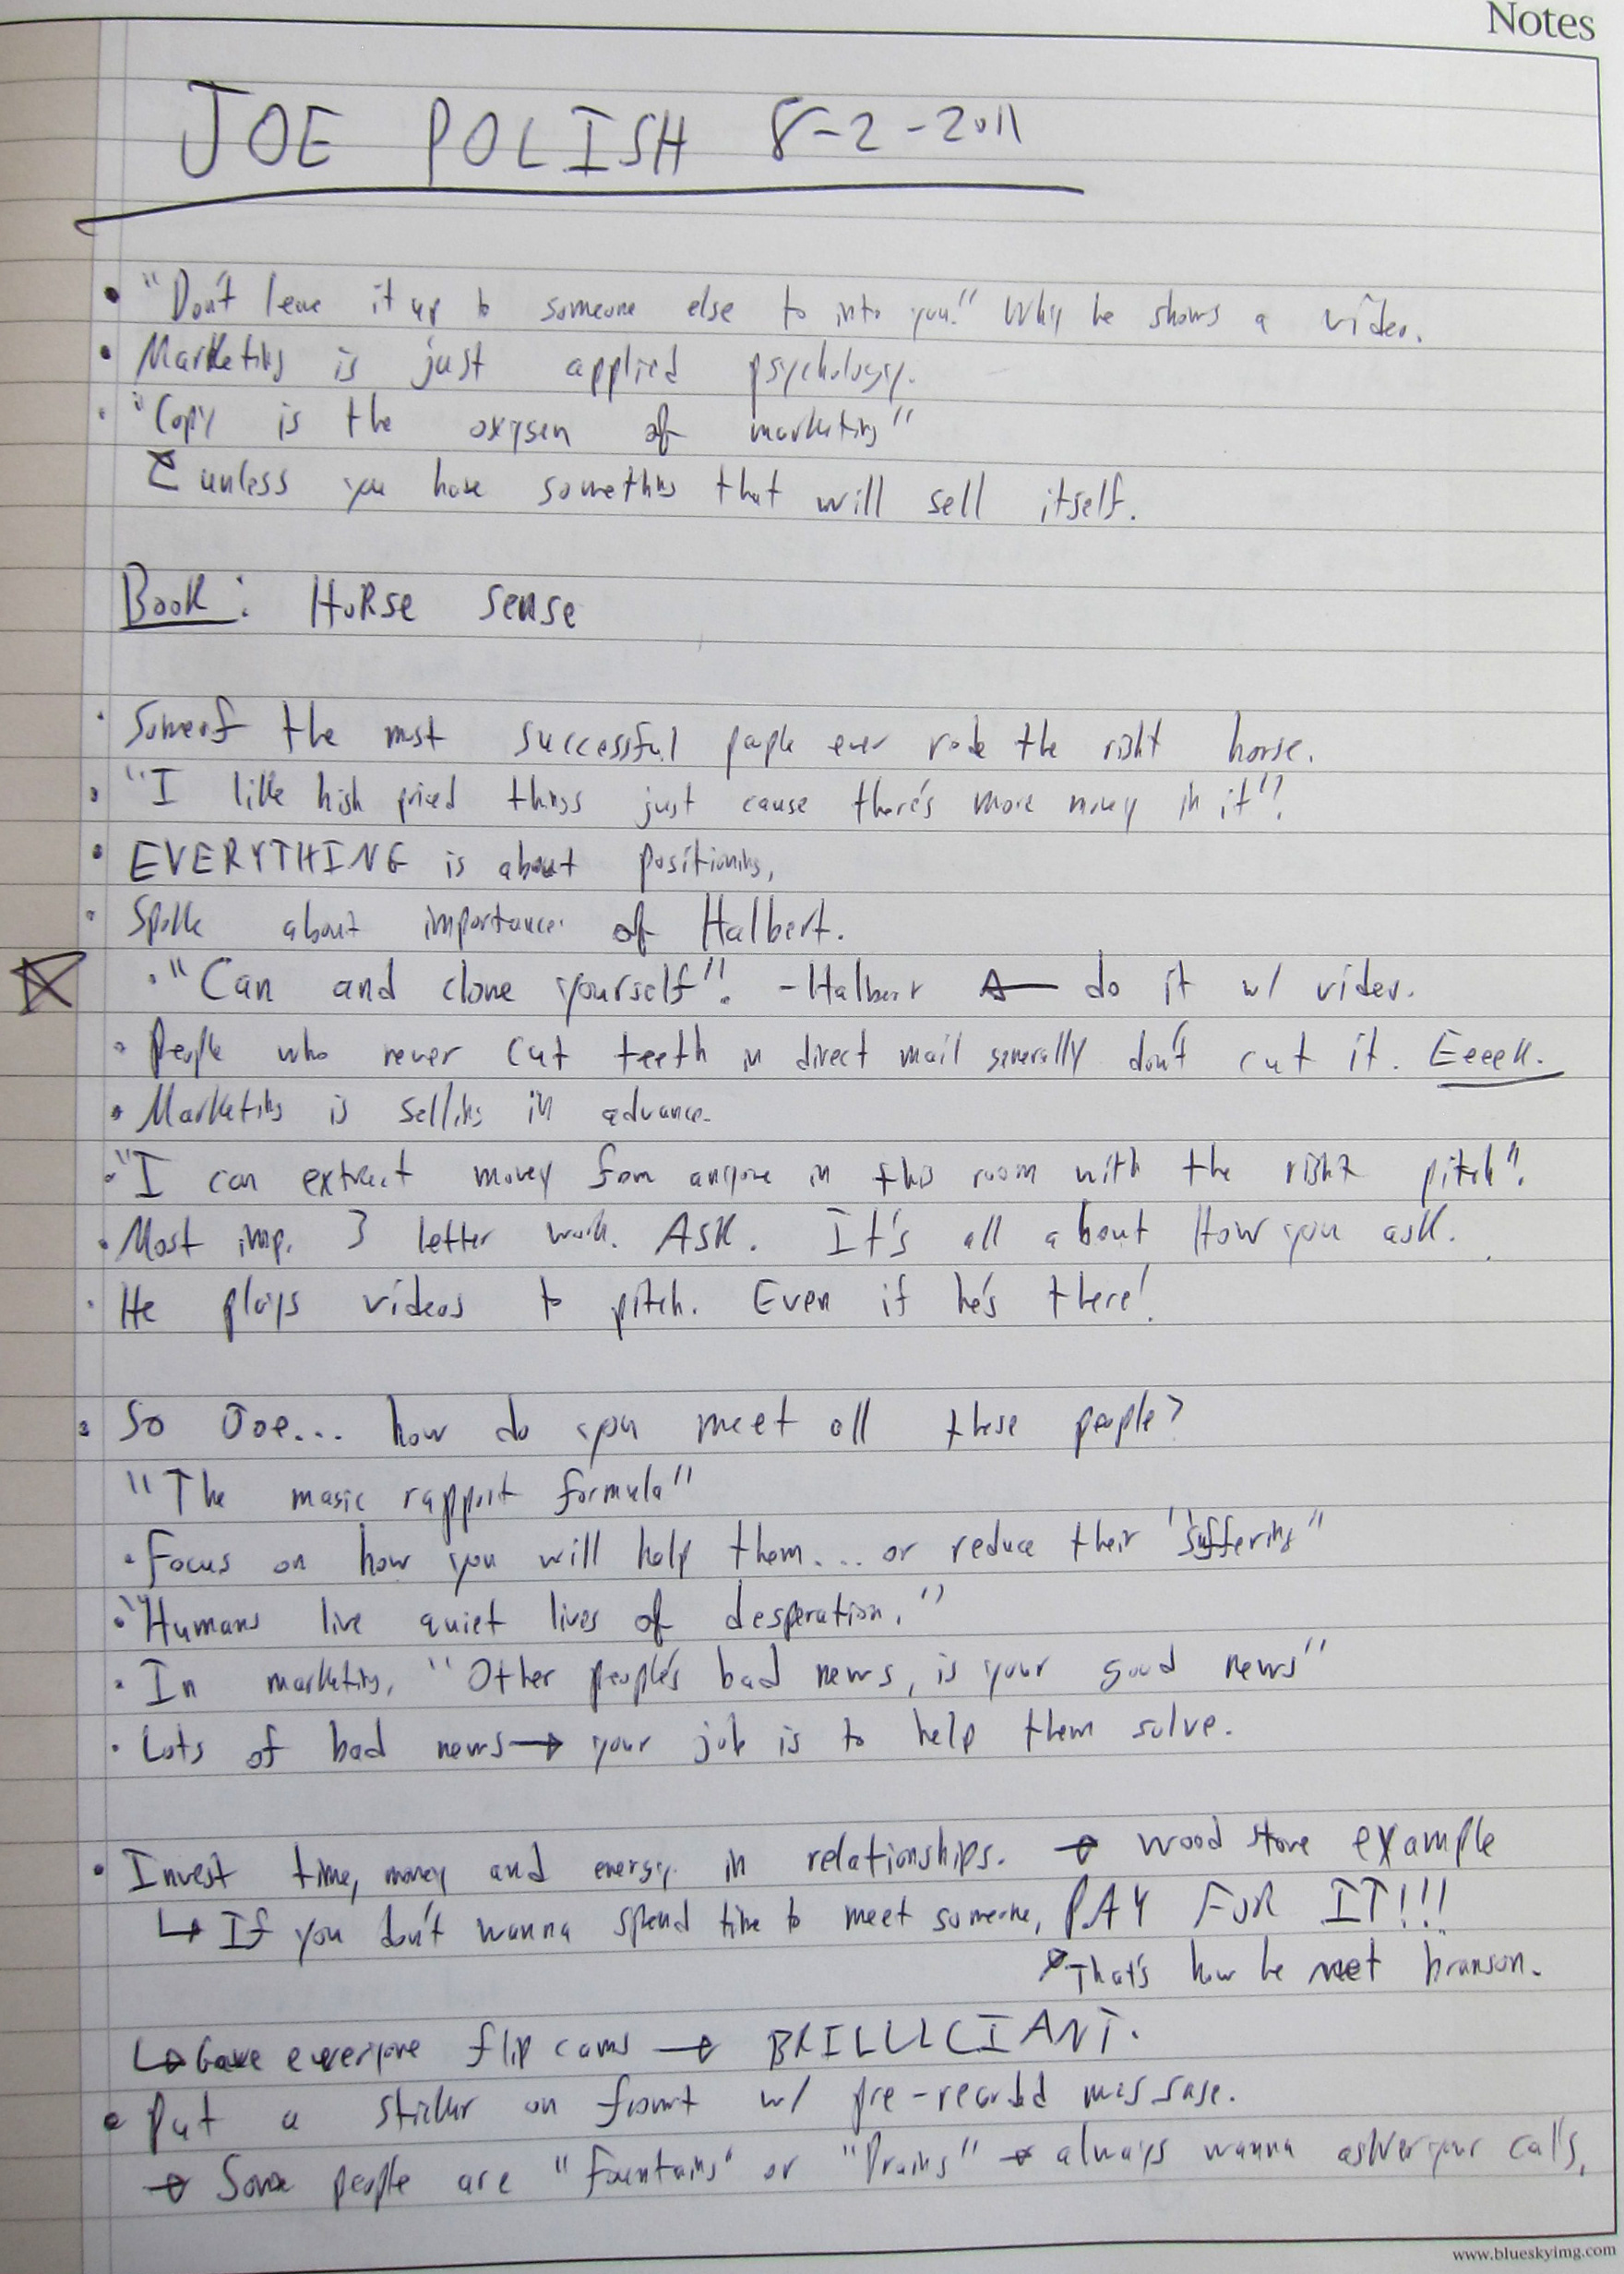 Notes
JOE POLISH 8-2-2011
• "Don't leave it up to someone else to into you." Why he shows a video.
• Marketing is just applied psychology.
• "Copy is the oxygen of marketing"
unless you have something that will sell itself.
Book: HoRse sense
• Some of the most successful people ever rode the right horse.
• "I like high priced things just cause there's more money in it".
• EVERYTHING is about positioning.
• Spoke about importance of Halbert.
• "Can and clone yourself". - Halbert ← do it w/ video.
• People who never cut teeth in direct mail generally don't cut it. Eeeek.
• Marketing is selling in advance.
• "I can extract money from anyone in this room with the right pitch".
• Most imp. 3 letter work. ASK. It's all about How you ask.
• He plays videos to pitch. Even if he's there!
• So Joe... how do you meet all these people?
"The magic rapport formula"
• Focus on how you will help them.... or reduce their "suffering"
• "Humans live quiet lives of desperation."
• In marketing, "Other people's bad news, is your good news"
• Lots of bad news → your job is to help them solve.
• Invest time, money and energy in relationships. → wood stove example
↳ If you don't wanna spend time to meet someone, PAY FOR IT!!!
That's how he met branson.
↳ Gave everyone flip cams → BRILLLCIANT.
• Put a sticker on front w/ pre-recorded message.
→ Some people are "fountains" or "Drains" → always wanna answer your calls.
www.blueskyimg.com